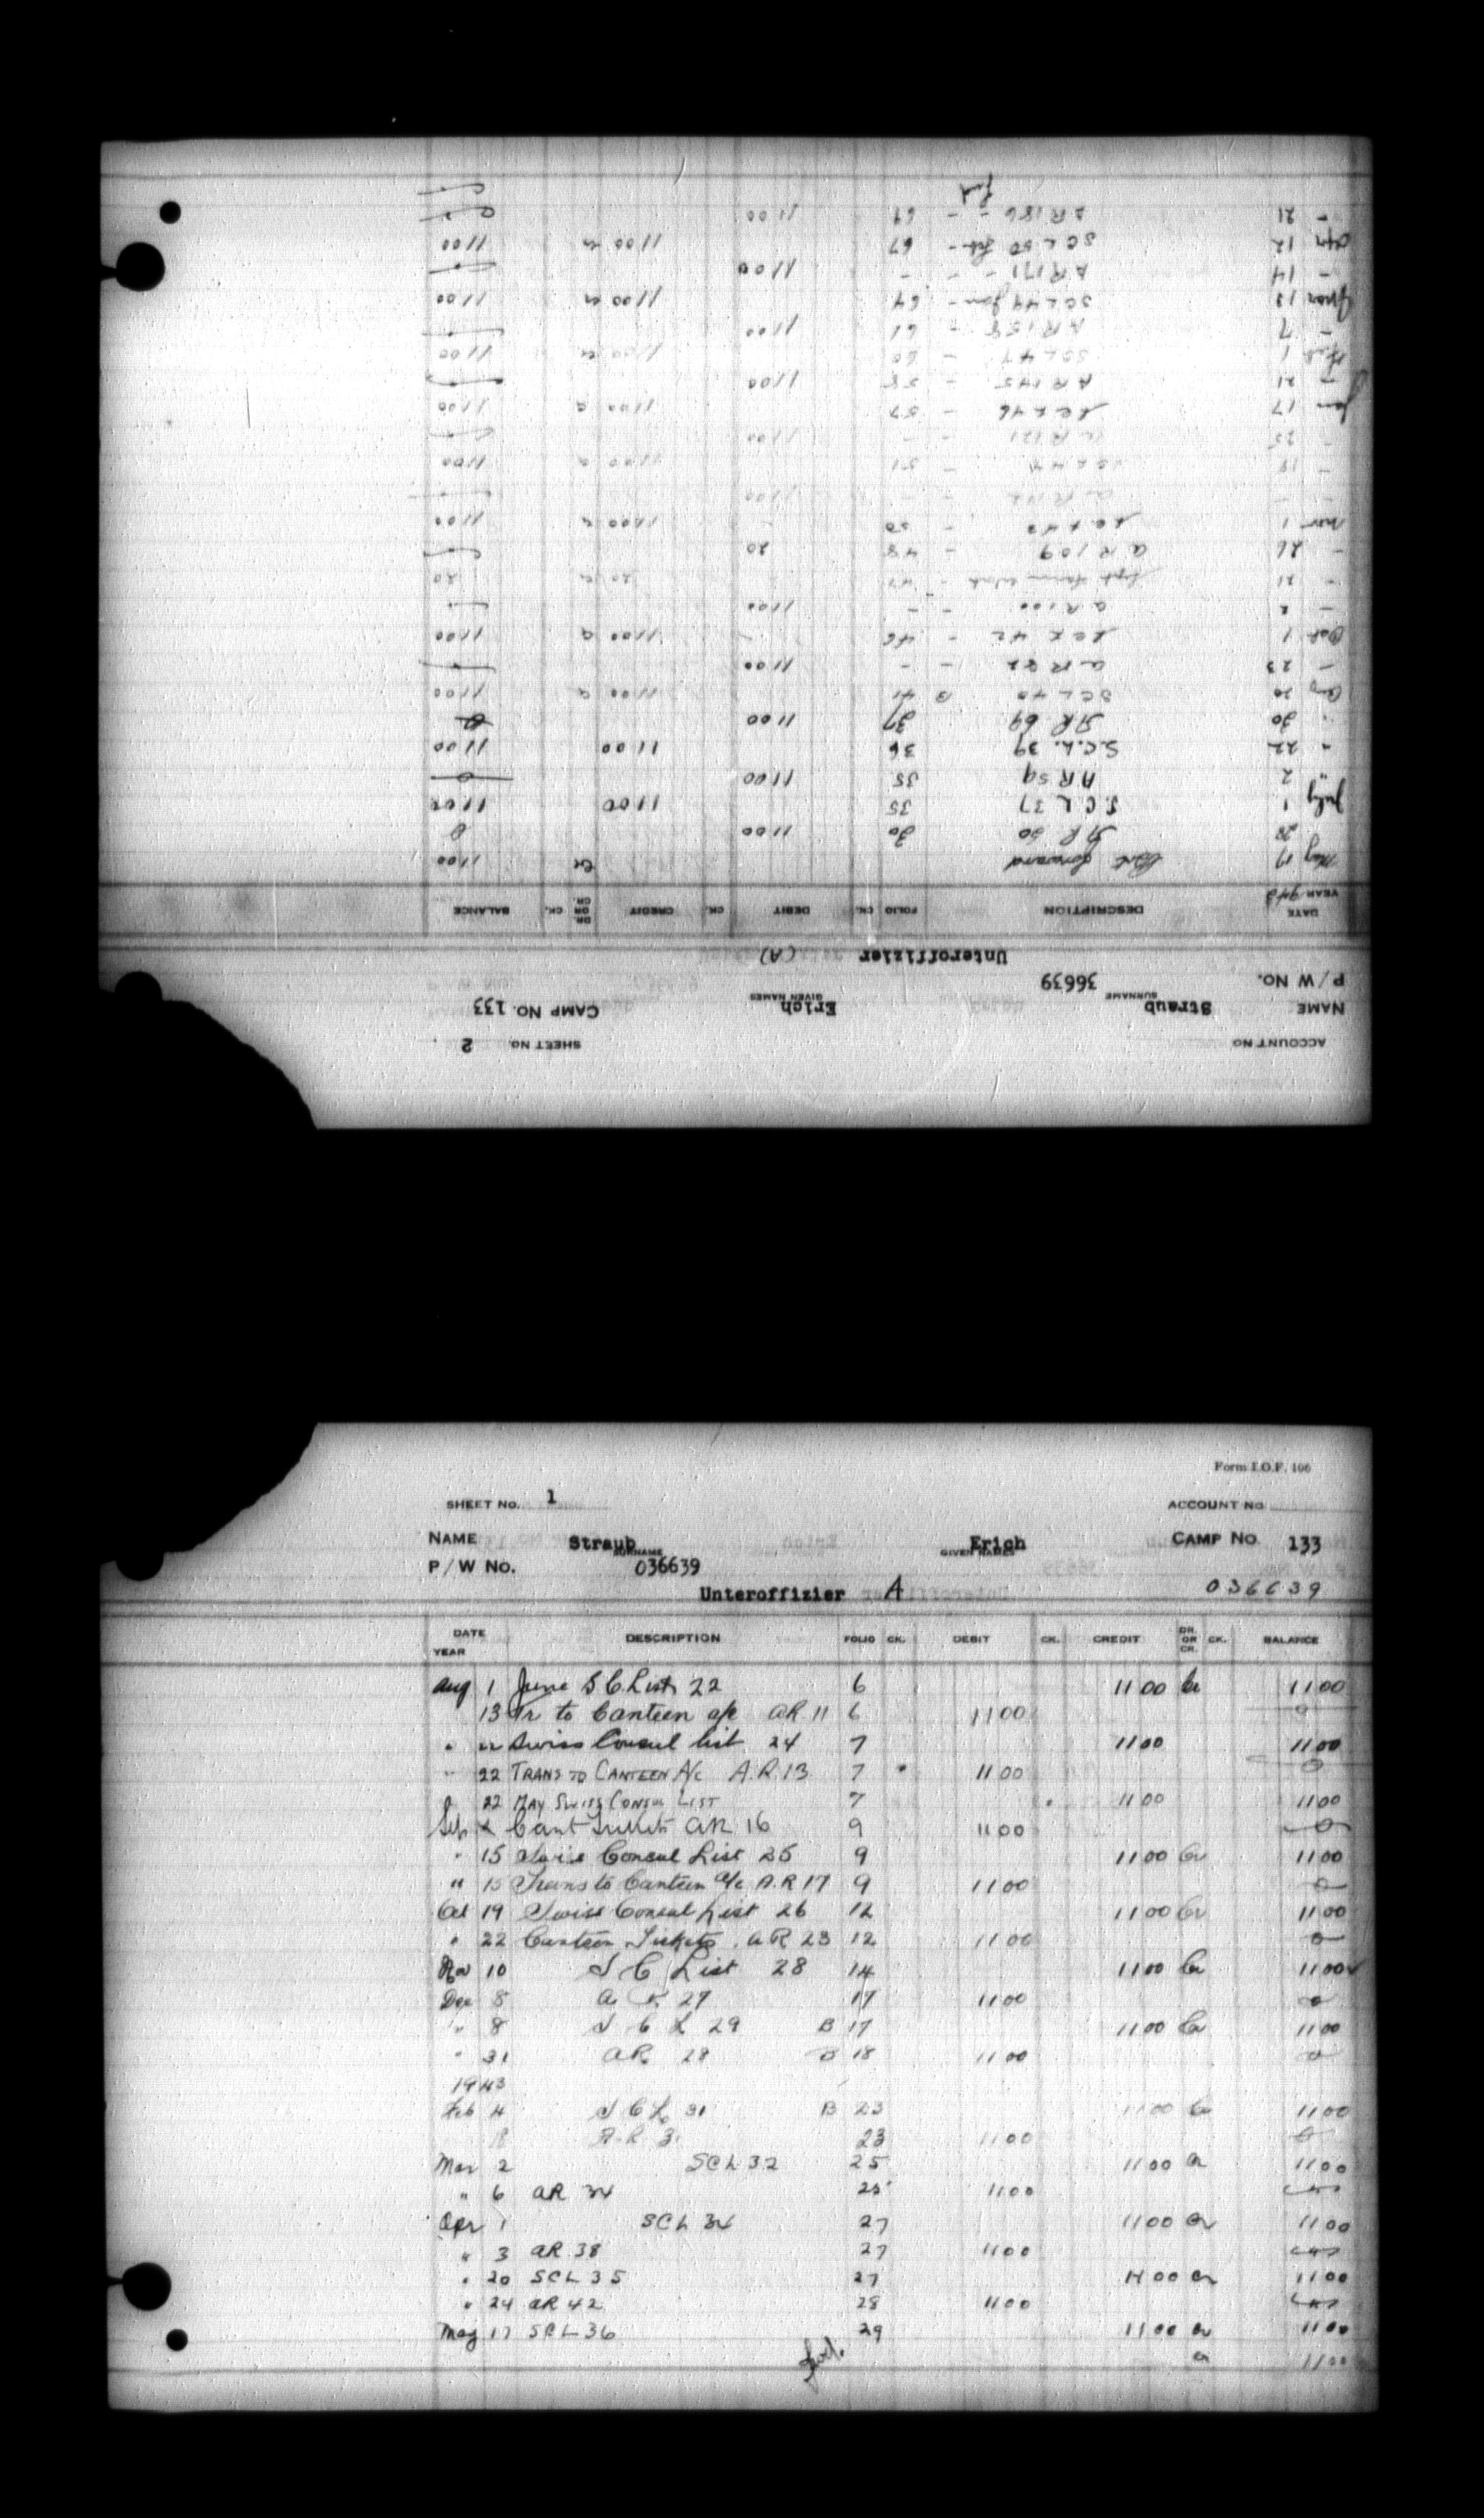 ACCOUNT NO
SHEET NO. 2
NAME Straub SURNAME Erich GIVEN NAMES CAMP NO. 133
P/W NO. 36639
Unteroffizier (A)
DATE YEAR 1943 DESCRIPTION FOLIO CK. DEBIT CK. CREDIT DR. OR CR. CK. BALANCE
May 17 forward Cr 1100
28 AR 50 30 1100 0
July 1 S.C L 37 35 1100 1100
" 2 AR 59 35 1100 0
" 22 S.C.L. 39 36 1100 1100
" 30 AR 69 37 1100 0
Aug 20 SCL 40 B 41 1100 cr 1100
- 23 AR 82 - - 1100
Oct 1 SCL 42 - 46 1100 cr 1100
- 2 AR 100 - - 1100
- 21 farm work - 47 20 cr 20
- 26 AR 109 - 48 20
Nov 1 SCL 43 - 50 1100 cr 1100
- - AR - - 1100
- 18 SCL - 51 1100 cr 1100
- 25 AR 121 - - 1100
Jan 17 SCL 46 - 57 1100 cr 1100
- 21 AR 145 - 58 1100
Feb 1 SCL 47 - 60 1100 cr 1100
- 7 AR 158 - 61 1100
Mar 13 SCL 49 Jan - 64 1100 cr 1100
- 14 AR 171 - - - 1100
Apr 12 SCL 50 Feb - 67 1100 cr 1100
- 21 AR 186 - - 69 1100
fwd
Form I.O.F. 106
SHEET NO. 1 ACCOUNT NO
NAME Straub SURNAME Erich GIVEN NAMES CAMP NO 133
P/W NO. 036639
Unteroffizier A 036639
DATE YEAR DESCRIPTION FOLIO CK. DEBIT CK. CREDIT DR. OR CR. CK. BALANCE
Aug 1 June S C List 22 6 1100 Cr 1100
13 Tr to Canteen a/c AR 11 6 1100 0
" 22 Swiss Consul list 24 7 1100 1100
" 22 TRANS TO CANTEEN A/C A.R.13 7 1100 0
22 MAY SWISS CONSUL LIST 7 1100 1100
Sep Cant Tickets AR 16 9 1100 0
" 15 Swiss Consul List 25 9 1100 Cr 1100
" 15 Trans to Canteen a/c A.R 17 9 1100 0
Oct 19 Swiss Consul List 26 12 1100 Cr 1100
" 22 Canteen Tickets AR 23 12 1100 0
Nov 10 S C List 28 14 1100 Cr 1100
Dec 8 A R 27 17 1100 0
" 8 S C L 29 B 17 1100 Cr 1100
" 31 AR 28 B 18 1100 0
1943
Feb 4 S C L 31 B 23 1100 Cr 1100
8 A.R. 23 1100 0
Mar 2 SCL 32 25 1100 Cr 1100
" 6 AR 34 25 1100
Apr 1 SCL 34 27 1100 Cr 1100
" 3 AR 38 27 1100
" 20 SCL 35 27 1100 cr 1100
" 24 AR 42 28 1100
May 17 SCL 36 29 1100 cr 1100
fwd. cr 1100